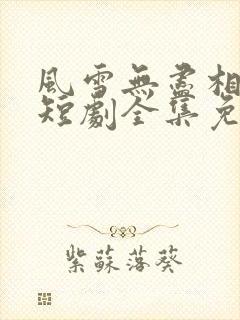 風雪無盡相
短劇全集免
紫蘇落葵